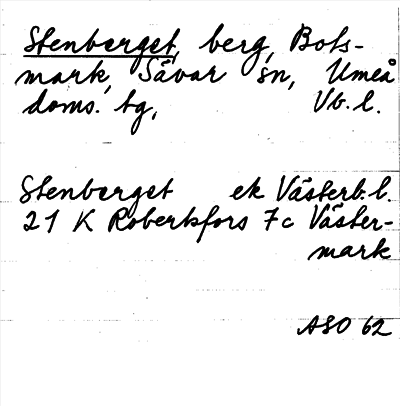 Stenberget, berg, Bots-
mark, Sävar sn, Umeå
doms. tg, Vb. l.
Stenberget ek Västerb. l.
21 K Robertsfors 7c Väster-
mark
ASO 62